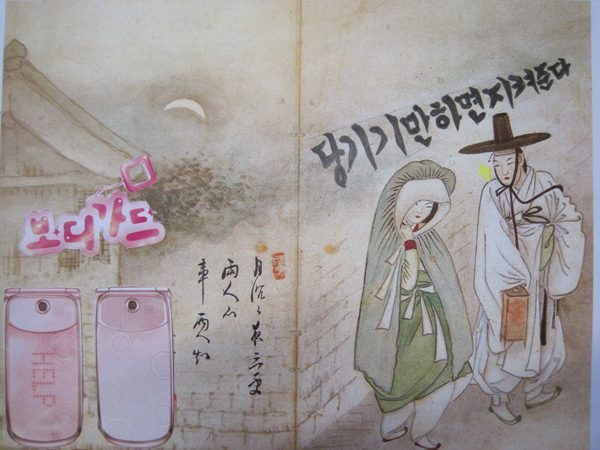 당기기만하면지켜준다
보디가드
月沈〻夜三更
兩人心
事兩人知
HELP